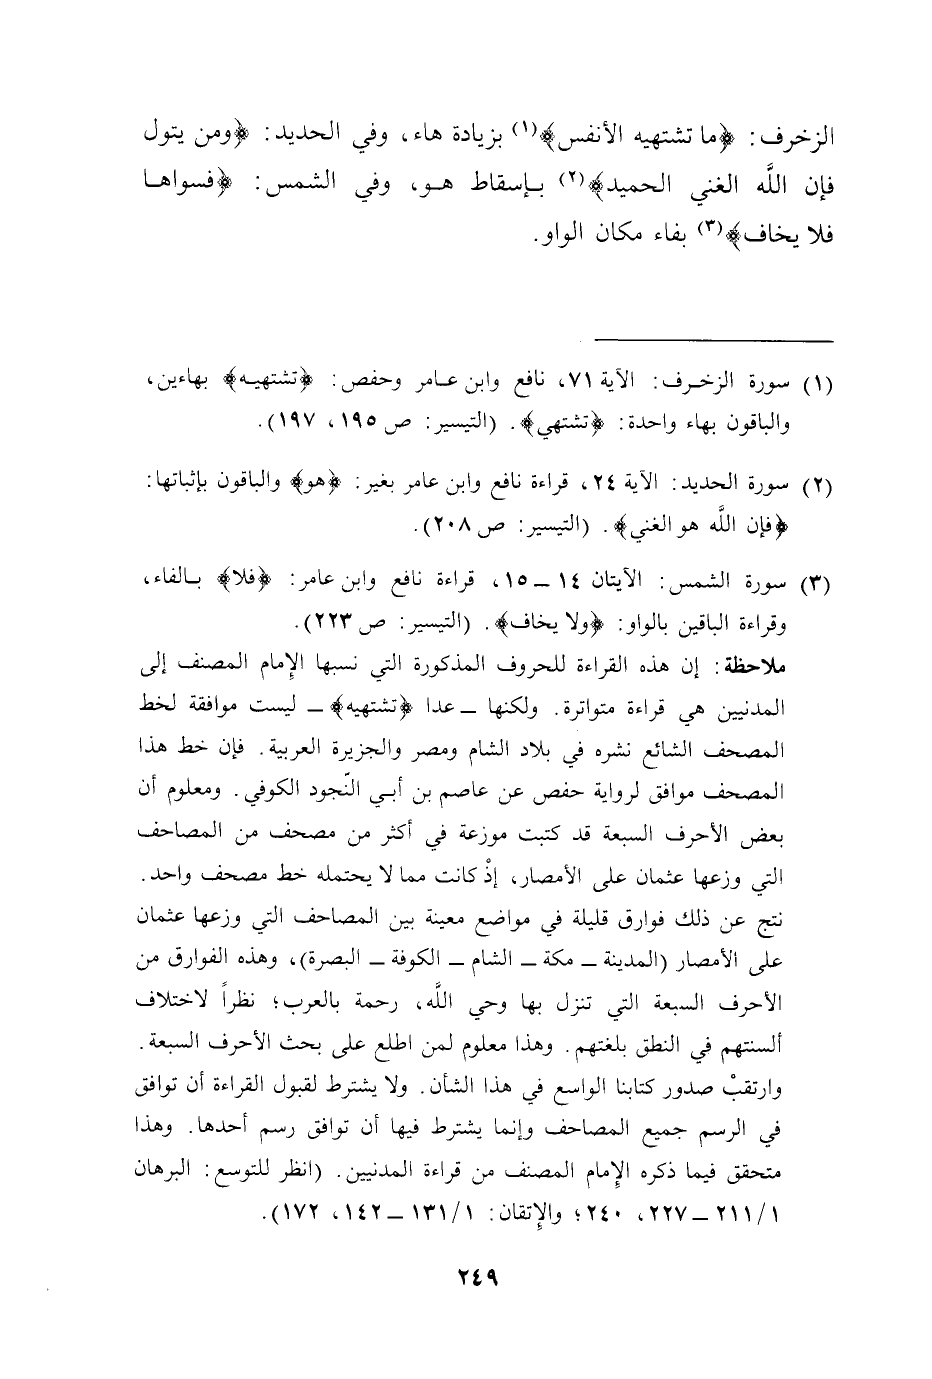 الزخرف: ﴿ما تشتهيه الأنفس﴾(١) بزيادة هاء، وفي الحديد: ﴿ومن يتول
فإن اللَّه الغني الحميد﴾(٢) بـإسقاط هـو، وفي الشمس: ﴿فسواهـا
فلا يخاف﴾(٣) بفاء مكان الواو.
(١) سورة الزخـرف: الآية ٧١، نافع وابن عـامر وحفص: ﴿تشتهيـه﴾ بهاءين،
والباقون بهاء واحدة: ﴿تشتهي﴾. (التيسير: ص ١٩٥، ١٩٧).
(٢) سورة الحديد: الآية ٢٤، قراءة نافع وابن عامر بغير: ﴿هو﴾ والباقون بإثباتها:
﴿فإن اللَّه هو الغني﴾. (التيسير: ص ٢٠٨).
(٣) سورة الشمس: الآيتان ١٤ ــ ١٥، قراءة نافع وابن عامر: ﴿فلا﴾ بـالفاء،
وقراءة الباقين بالواو: ﴿ولا يخاف﴾. (التيسير: ص ٢٢٣).
ملاحظة: إن هذه القراءة للحروف المذكورة التي نسبها الإمام المصنف إلى
المدنيين هي قراءة متواترة. ولكنها ــ عدا ﴿تشتهيه﴾ ــ ليست موافقة لخط
المصحف الشائع نشره في بلاد الشام ومصر والجزيرة العربية. فإن خط هذا
المصحف موافق لرواية حفص عن عاصم بن أبـي النّجود الكوفي. ومعلوم أن
بعض الأحرف السبعة قد كتبت موزعة في أكثر من مصحف من المصاحف
التي وزعها عثمان على الأمصار، إذْ كانت مما لا يحتمله خط مصحف واحد.
نتج عن ذلك فوارق قليلة في مواضع معينة بين المصاحف التي وزعها عثمان
على الأمصار (المدينة ــ مكة ــ الشام ــ الكوفة ــ البصرة)، وهذه الفوارق من
الأحرف السبعة التي تنزل بها وحي اللَّه، رحمة بالعرب؛ نظراً لاختلاف
ألسنتهم في النطق بلغتهم. وهذا معلوم لمن اطلع على بحث الأحرف السبعة.
وارتقبْ صدور كتابنا الواسع في هذا الشأن. ولا يشترط لقبول القراءة أن توافق
في الرسم جميع المصاحف وإنما يشترط فيها أن توافق رسم أحدها. وهذا
متحقق فيما ذكره الإمام المصنف من قراءة المدنيين. (انظر للتوسع: البرهان
١/ ٢١١ ــ ٢٢٧، ٢٤٠؛ والإتقان: ١/ ١٣١ ــ ١٤٢، ١٧٢).
٢٤٩